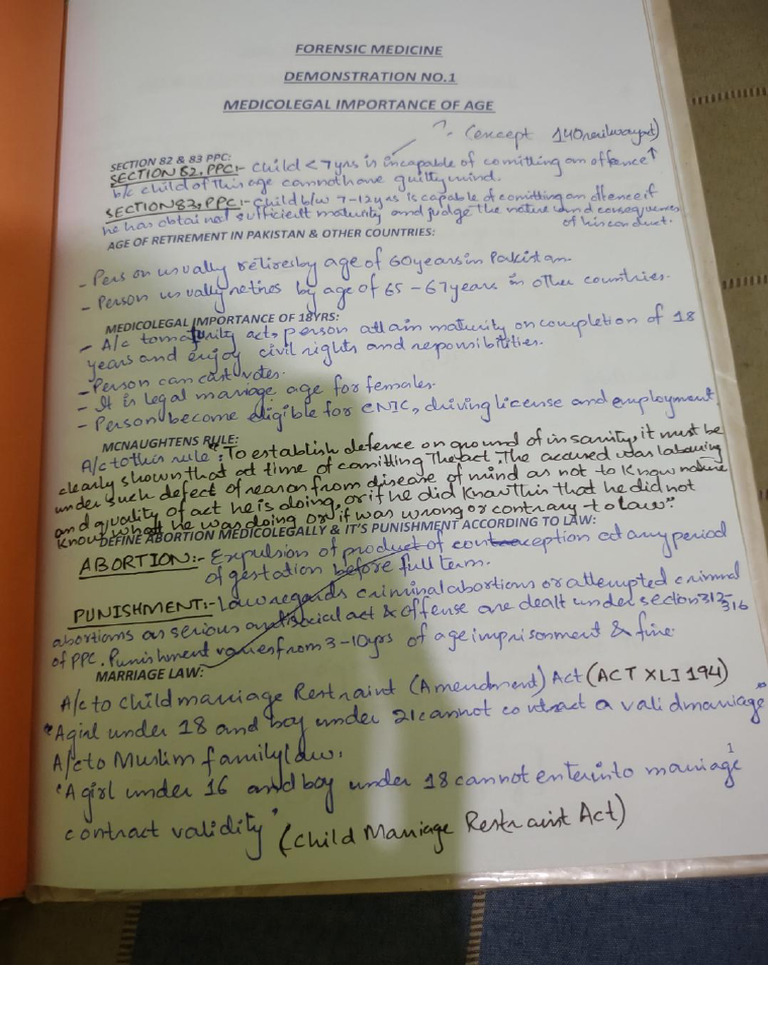 FORENSIC MEDICINE
DEMONSTRATION NO.1
MEDICOLEGAL IMPORTANCE OF AGE
Concept 140 railway act)
SECTION 82 & 83 PPC:
SECTION 82. PPC:- Child < 7 yrs is incapable of comitting an offence
b/c child of this age cannot have guilty mind.
SECTION 83. PPC:- Child b/w 7-12 yrs is capable of comitting an offence if
he has obtained sufficient maturity and judge the nature and consequences
of his conduct.
AGE OF RETIREMENT IN PAKISTAN & OTHER COUNTRIES:
- Person usually retires by age of 60 years in Pakistan.
- Person usually retires by age of 65 - 67 years in other countries.
MEDICOLEGAL IMPORTANCE OF 18YRS:
- A/c to maturity act, person attain maturity on completion of 18
years and enjoy civil rights and reponsibilities.
- Person can cast votes.
- It is legal marriage age for females.
- Person become eligible for CNIC, driving license and employment.
MCNAUGHTENS RULE:
A/c to this rule "To establish defence on ground of insanity, it must be
clearly shown that at time of comitting the act, The accused was labouring
under such defect of reason from disease of mind as not to know nature
and quality of act he is doing, or if he did know this that he did not
know what he was doing or if was wrong or contrary to law".
DEFINE ABORTION MEDICOLEGALLY & IT'S PUNISHMENT ACCORDING TO LAW:
ABORTION:- Expulsion of product of conception at any period
of gestation before full term.
PUNISHMENT:- Law regards criminal abortions or attempted criminal
abortions as serious antisocial act & offense are dealt under section 312-316
of PPC. Punishment varies from 3-10 yrs of age imprisonment & fine.
MARRIAGE LAW:
A/c to child marriage Restraint (Amendment) Act (ACT XLI 194)
"A girl under 18 and boy under 21 cannot contract a valid marriage"
A/c to Muslim family law.
"A girl under 16 and boy under 18 cannot enter into marriage
contract validity" (Child Marriage Restraint Act)
1